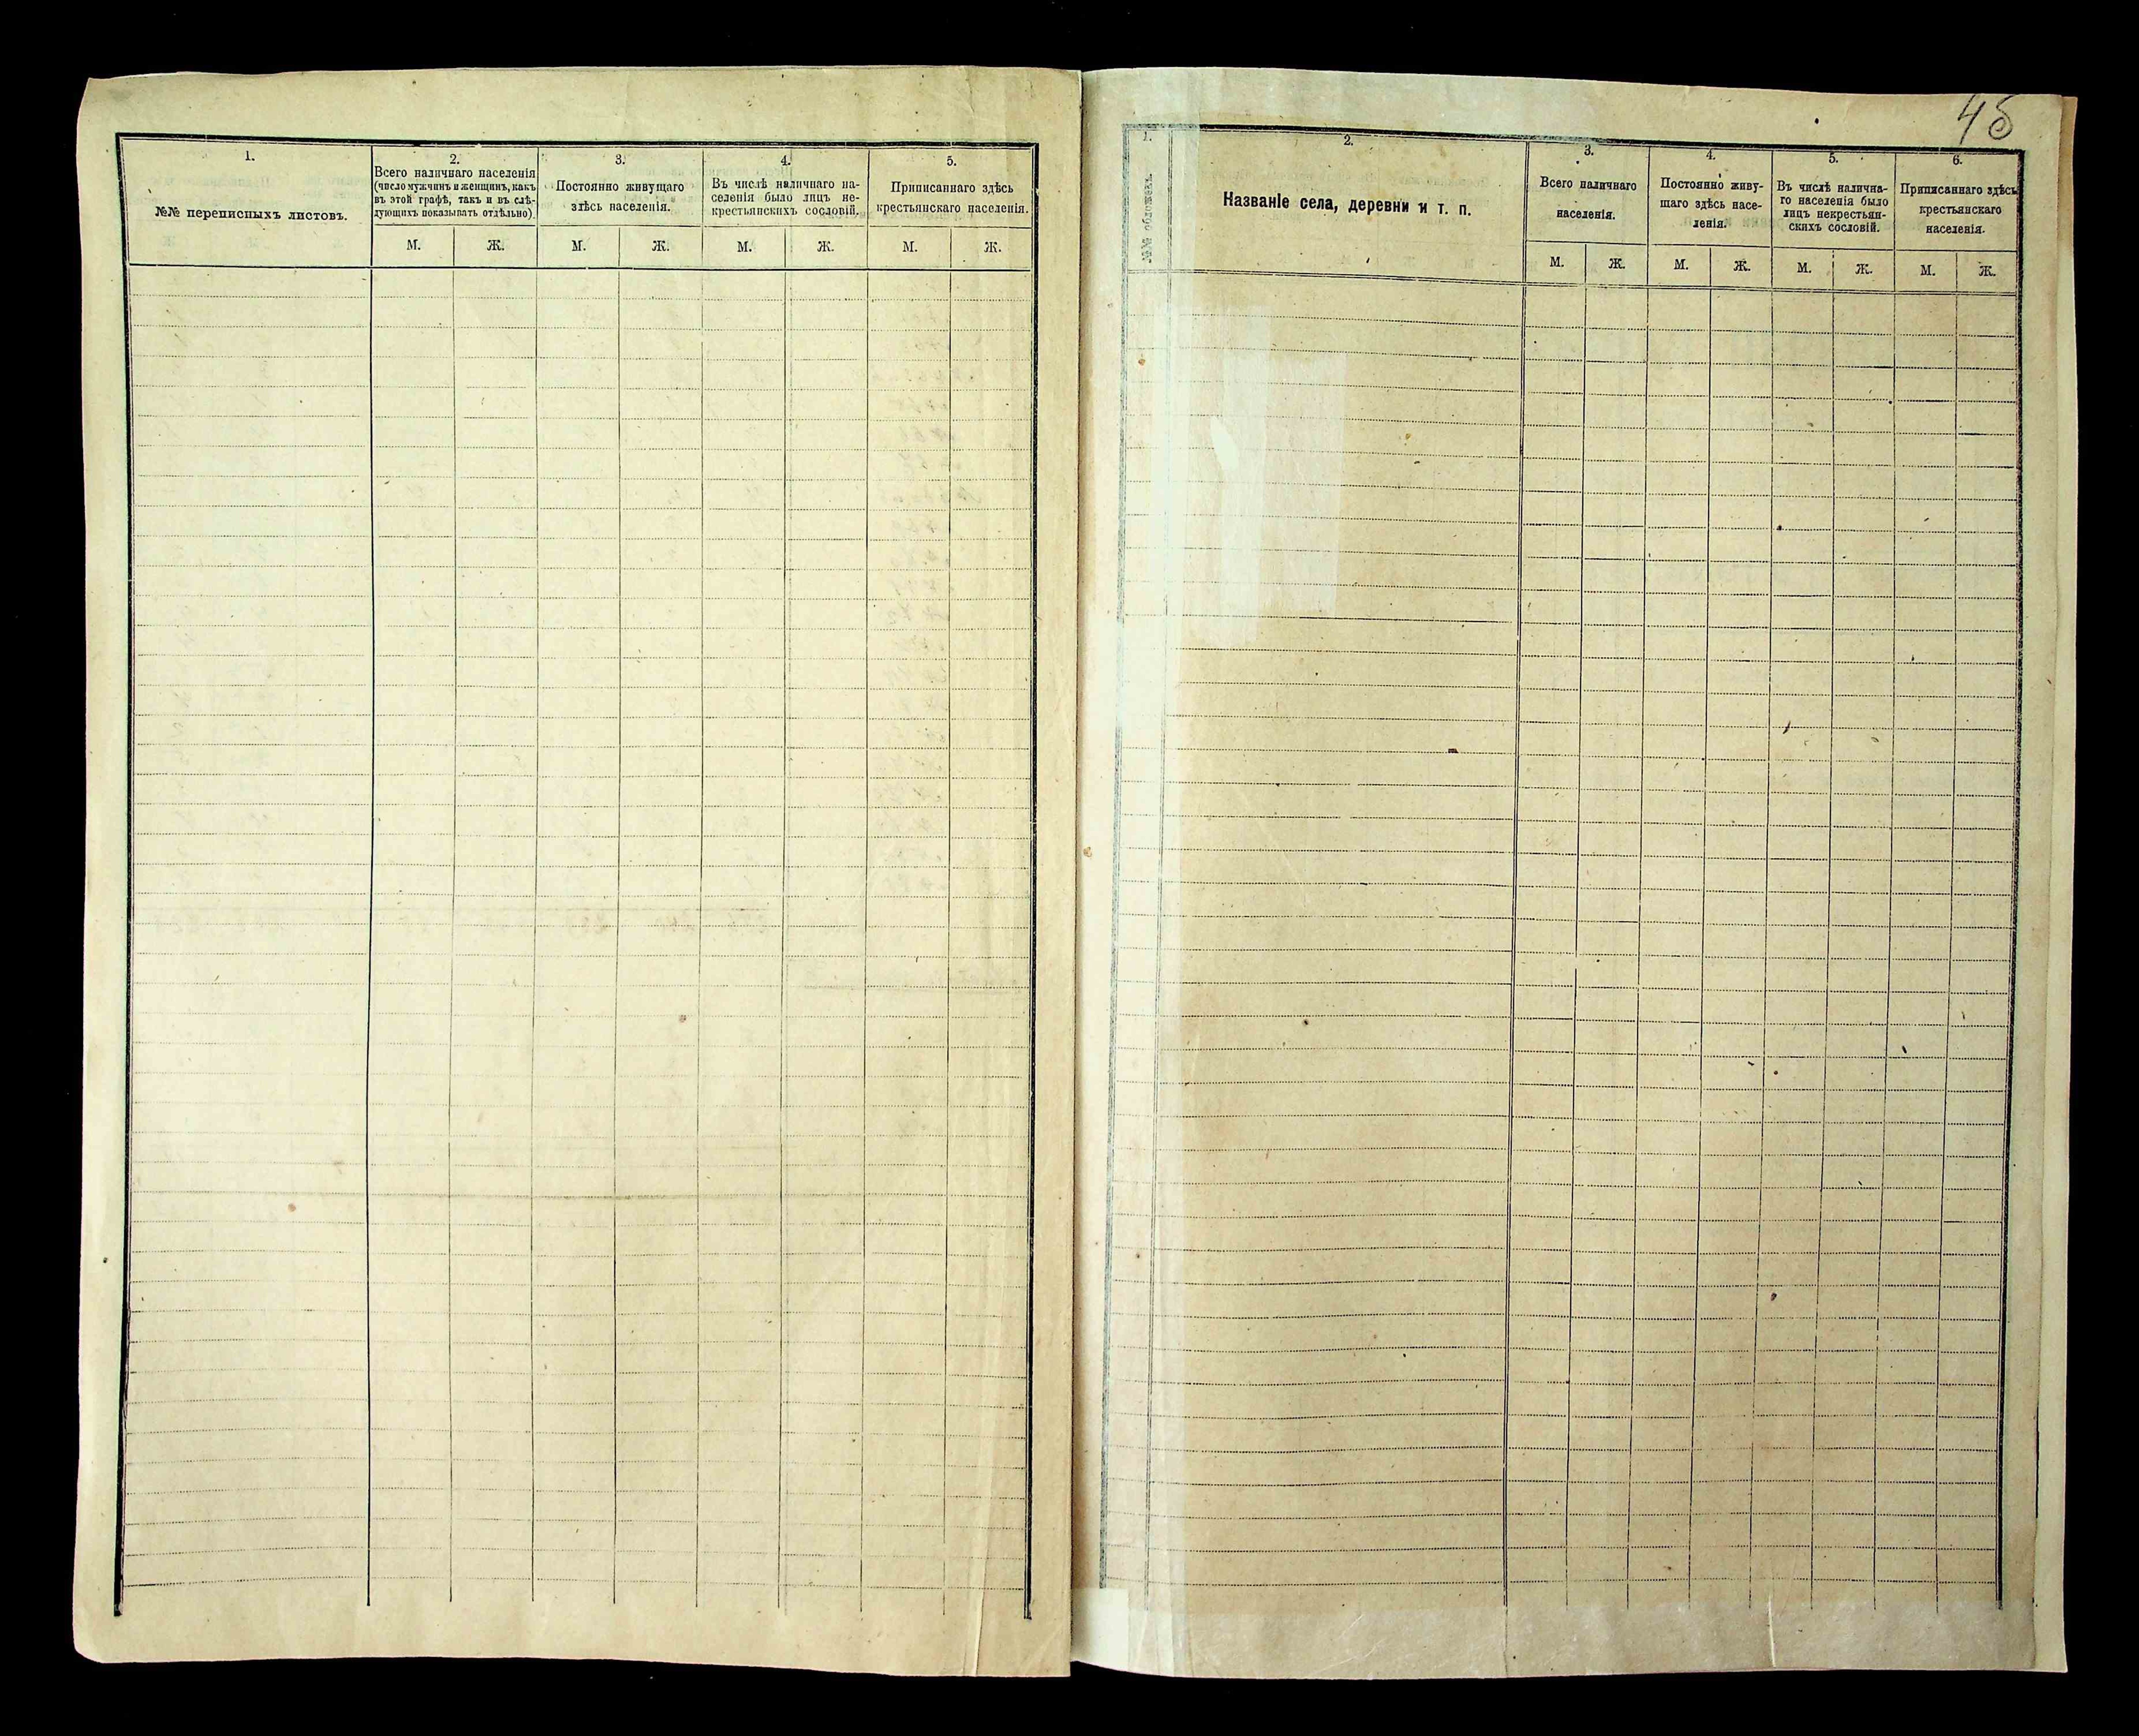 1.
№№ переписныхъ листовъ.
2.
Всего наличнаго населенія
(число мужчинъ и женщинъ, какъ
въ этой графѣ, такъ и въ слѣ-
дующихъ показывать отдѣльно).
М. Ж.
3.
Постоянно живущаго
здѣсь населенія.
М. Ж.
4.
Въ числѣ наличнаго на-
селенія было лицъ не-
крестьянскихъ сословій.
М. Ж.
5.
Приписаннаго здѣсь
крестьянскаго населенія.
М. Ж.
45
1.
№№ обложекъ.
2.
Названіе села, деревни и т. п.
3.
Всего наличнаго
населенія.
М. Ж.
4.
Постоянно живу-
щаго здѣсь насе-
ленія.
М. Ж.
5.
Въ числѣ налична-
го населенія было
лицъ некрестьян-
скихъ сословій.
М. Ж.
6.
Приписаннаго здѣсь
крестьянскаго
населенія.
М. Ж.